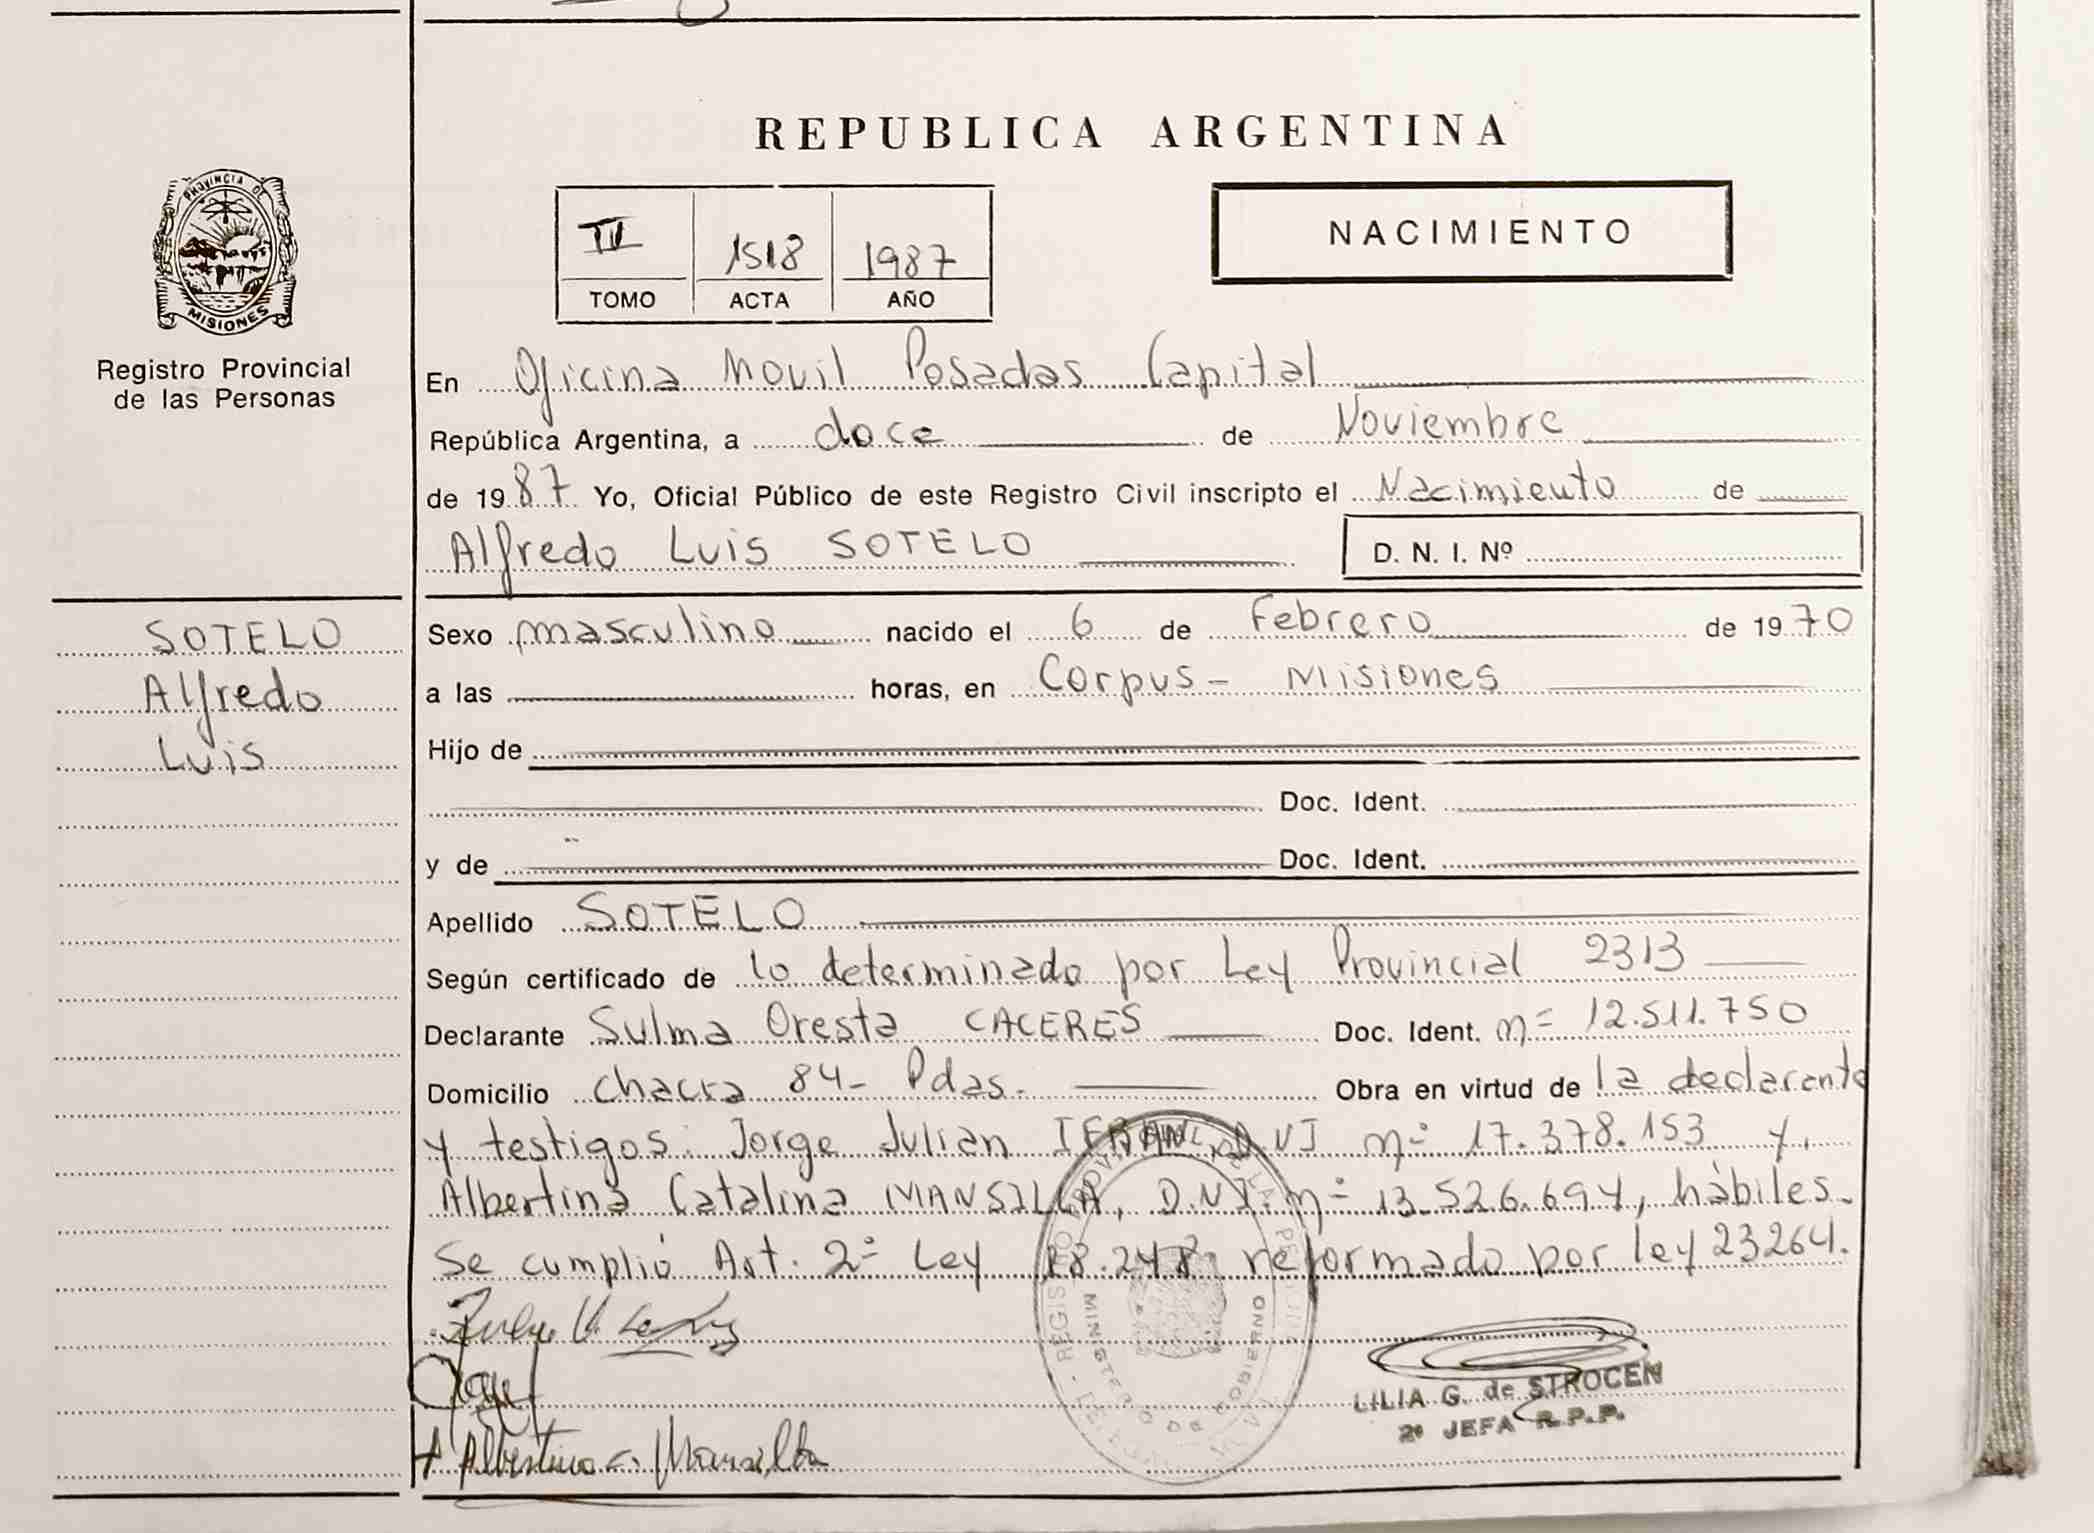 REPUBLICA ARGENTINA
PROVINCIA DE
MISIONES
Registro Provincial
de las Personas
1518 1987
TOMO ACTA AÑO
NACIMIENTO
En Oficina Movil Posadas Capital
República Argentina, a doce de Noviembre
de 1987 Yo, Oficial Público de este Registro Civil inscripto el Nacimiento de
Alfredo Luis SOTELO D. N. I. Nº
SOTELO
Alfredo
Luis
Sexo masculino nacido el 6 de Febrero de 1970
a las horas, en Corpus - Misiones
Hijo de
Doc. Ident.
y de Doc. Ident.
Apellido SOTELO
Según certificado de lo determinado por Ley Provincial 2313
Declarante Sulma Oresta CACERES Doc. Ident. nº 12.511.750
Domicilio chacra 84- Pdas. Obra en virtud de la declarante
y testigos: Jorge Julian D.N.I nº 17.378.153 y,
Albertina Catalina MANSILLA, D.N.I. nº 13.526.694, hábiles.
Se cumplió Art. 2º Ley 18.248 reformado por ley 23264.
MINISTERIO DE GOBIERNO
LILIA G. de STROCEN
2º JEFA R.P.P.
Albertina C. Mansilla